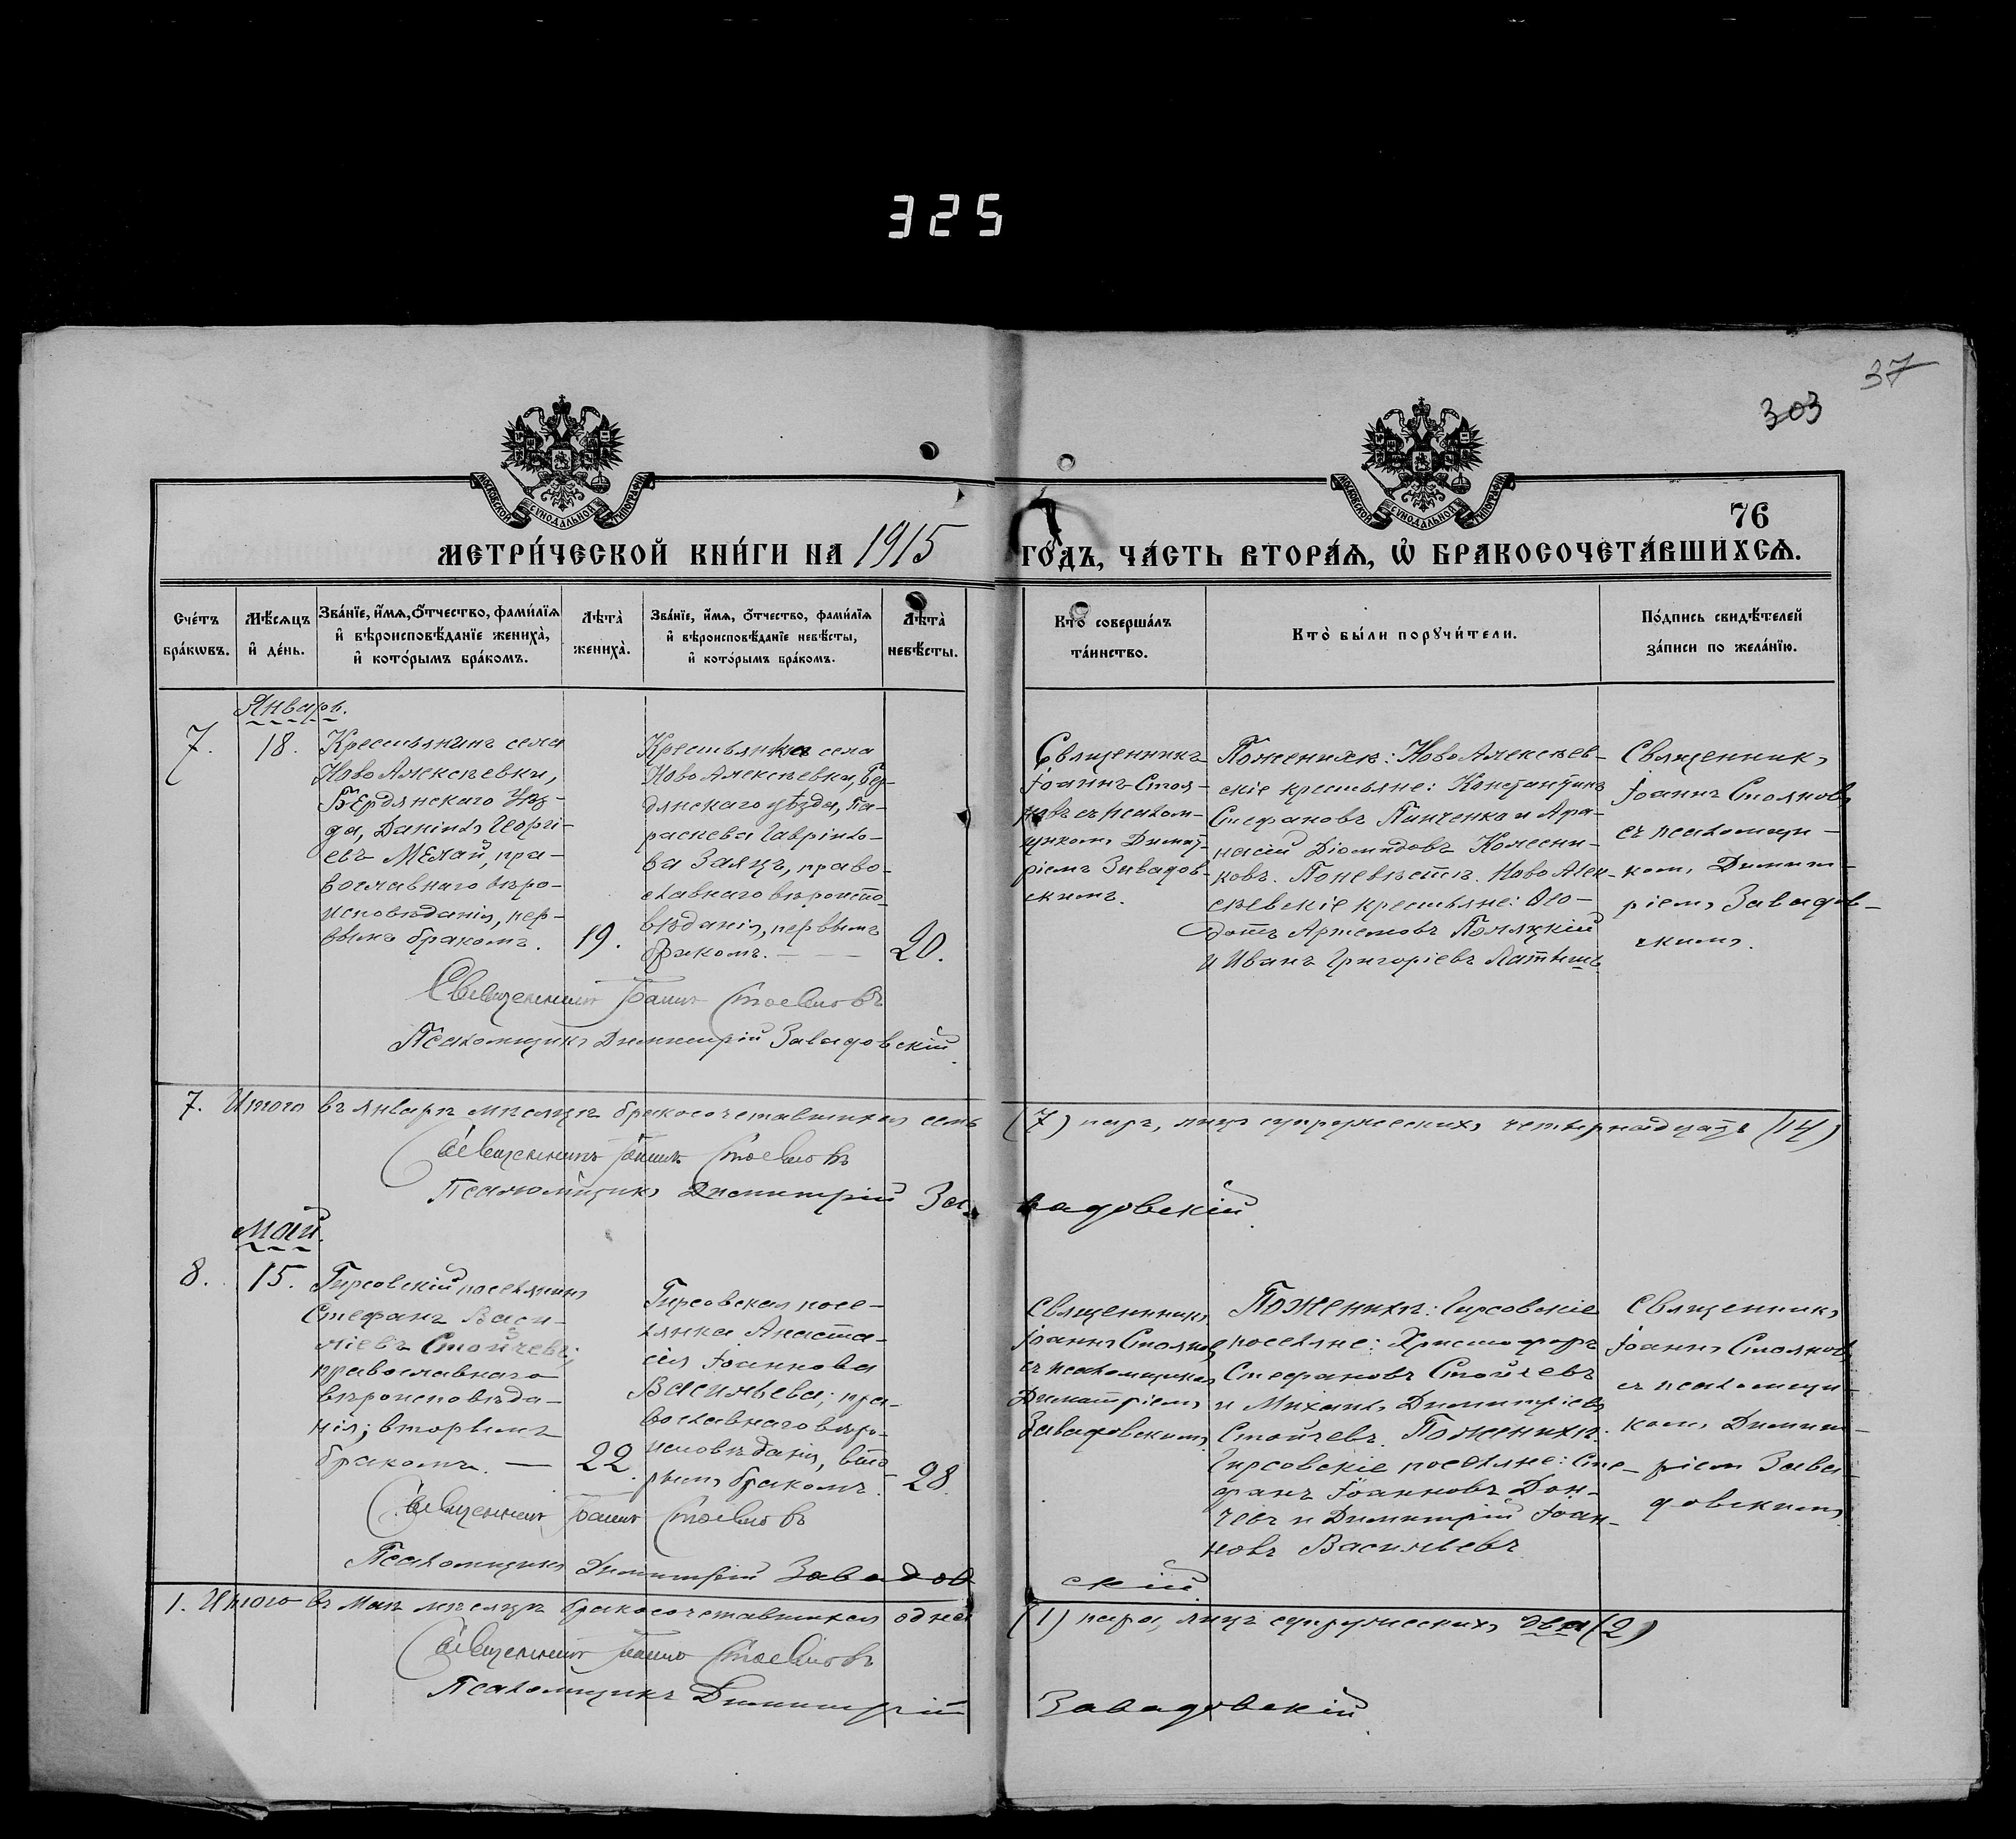 325
37
303
76
МОСКОВСКОЙ СѴНОДАЛЬНОЙ ТИПОГРАФІИ
МОСКОВСКОЙ СѴНОДАЛЬНОЙ ТИПОГРАФІИ
МЕТРИ́ЧЕСКОЙ КНИ́ГИ НА 1915 ГО́ДЪ, ЧА́СТЬ ВТОРА́Ѧ, Ѽ БРАКОСОЧЕТА́ВШИХСѦ.
Сче́тъ
бра́кѡвъ.
Мѣ́сѧцъ
и҆ де́нь.
Зва́нїе, и҆́мѧ, ѻ҆́тчество, фами́лїѧ
и҆ вѣроисповѣ́данїе жениха̀,
и҆ кото́рымъ бра́комъ.
Лѣта̀
жениха̀.
Зва́нїе, и҆́мѧ, ѻ҆́тчество, фами́лїѧ
и҆ вѣроисповѣ́данїе невѣ́сты,
и҆ кото́рымъ бра́комъ.
Лѣта̀
невѣ́сты.
Кто̀ соверша́лъ
та́инство.
Кто̀ бы́ли порꙋчи́тели.
По́дпись свидѣ́телей
за́писи по жела́нїю.
Январь.
7.
18.
Крестьянинъ села
Ново Алексѣевки,
Бердянскаго Уѣз-
да, Даніилъ Георгі-
евъ Мелай, пра-
вославнаго вѣро-
исповѣданія, пер-
вымъ бракомъ.
19.
Крестьянка села
Ново Алексѣевки, Бер-
дянскаго уѣзда, Па-
раскева Гавріило-
ва Заяцъ, право-
славнаго вѣроиспо-
вѣданія, первымъ
бракомъ. — — —
20.
Священникъ
Іоаннъ Стоя-
новъ съ псалом-
щикомъ Димит-
ріемъ Завадов-
скимъ.
По женихѣ: Ново Алексѣев-
скіе крестьяне: Константинъ
Стефановъ Пипченко и Афа-
насій Діомидовъ Колесни-
ковъ. По невѣстѣ. Ново Алек-
сѣевскіе крестьяне: Ѳео-
дотъ Артемовъ Поляцкій
и Иванъ Григоріевъ Латышъ
Священникъ
Іоаннъ Стояновъ
съ псаломщи-
комъ Димит-
ріемъ Завадов-
скимъ.
Священникъ Іоаннъ Стояновъ
Псаломщикъ Димитрій Завадовскій.
7. Итого въ январѣ мѣсяцѣ бракосочетавшихся семь (7) паръ, лицъ супружескихъ четырнадцать (14)
Священникъ Іоаннъ Стояновъ
Псаломщикъ Димитрій Завадовскій.
Май.
8.
15.
Гирсовскій поселянинъ
Стефанъ Васи-
ліевъ Стойчевъ;
православнаго
вѣроисповѣда-
нія; вторымъ
бракомъ. —
22.
Гирсовская посе-
лянка Анаста-
сія Іоаннова
Васильева; пра-
вославнаго вѣро-
исповѣданія, вто-
рымъ бракомъ.
28.
Священникъ
Іоаннъ Стояновъ
съ псаломщикомъ
Димитріемъ
Завадовскимъ
По женихѣ: Гирсовскіе
поселяне: Христофоръ
Стефановъ Стойчевъ
и Михаилъ Димитріевъ
Стойчевъ. По женихѣ.
Гирсовскіе поселяне: Сте-
фанъ Іоанновъ Дон-
чевъ и Димитрій Іоан-
новъ Васильевъ
Священникъ
Іоаннъ Стояновъ
съ псаломщи-
комъ Димит-
ріемъ Зава-
довскимъ
Священникъ Іоаннъ Стояновъ
Псаломщикъ Димитрій Завадовскій
1. Итого въ Маѣ мѣсяцѣ бракосочетавшихся одна (1) пара, лицъ супружескихъ два (2)
Священникъ Іоаннъ Стояновъ
Псаломщикъ Димитрій Завадовскій.